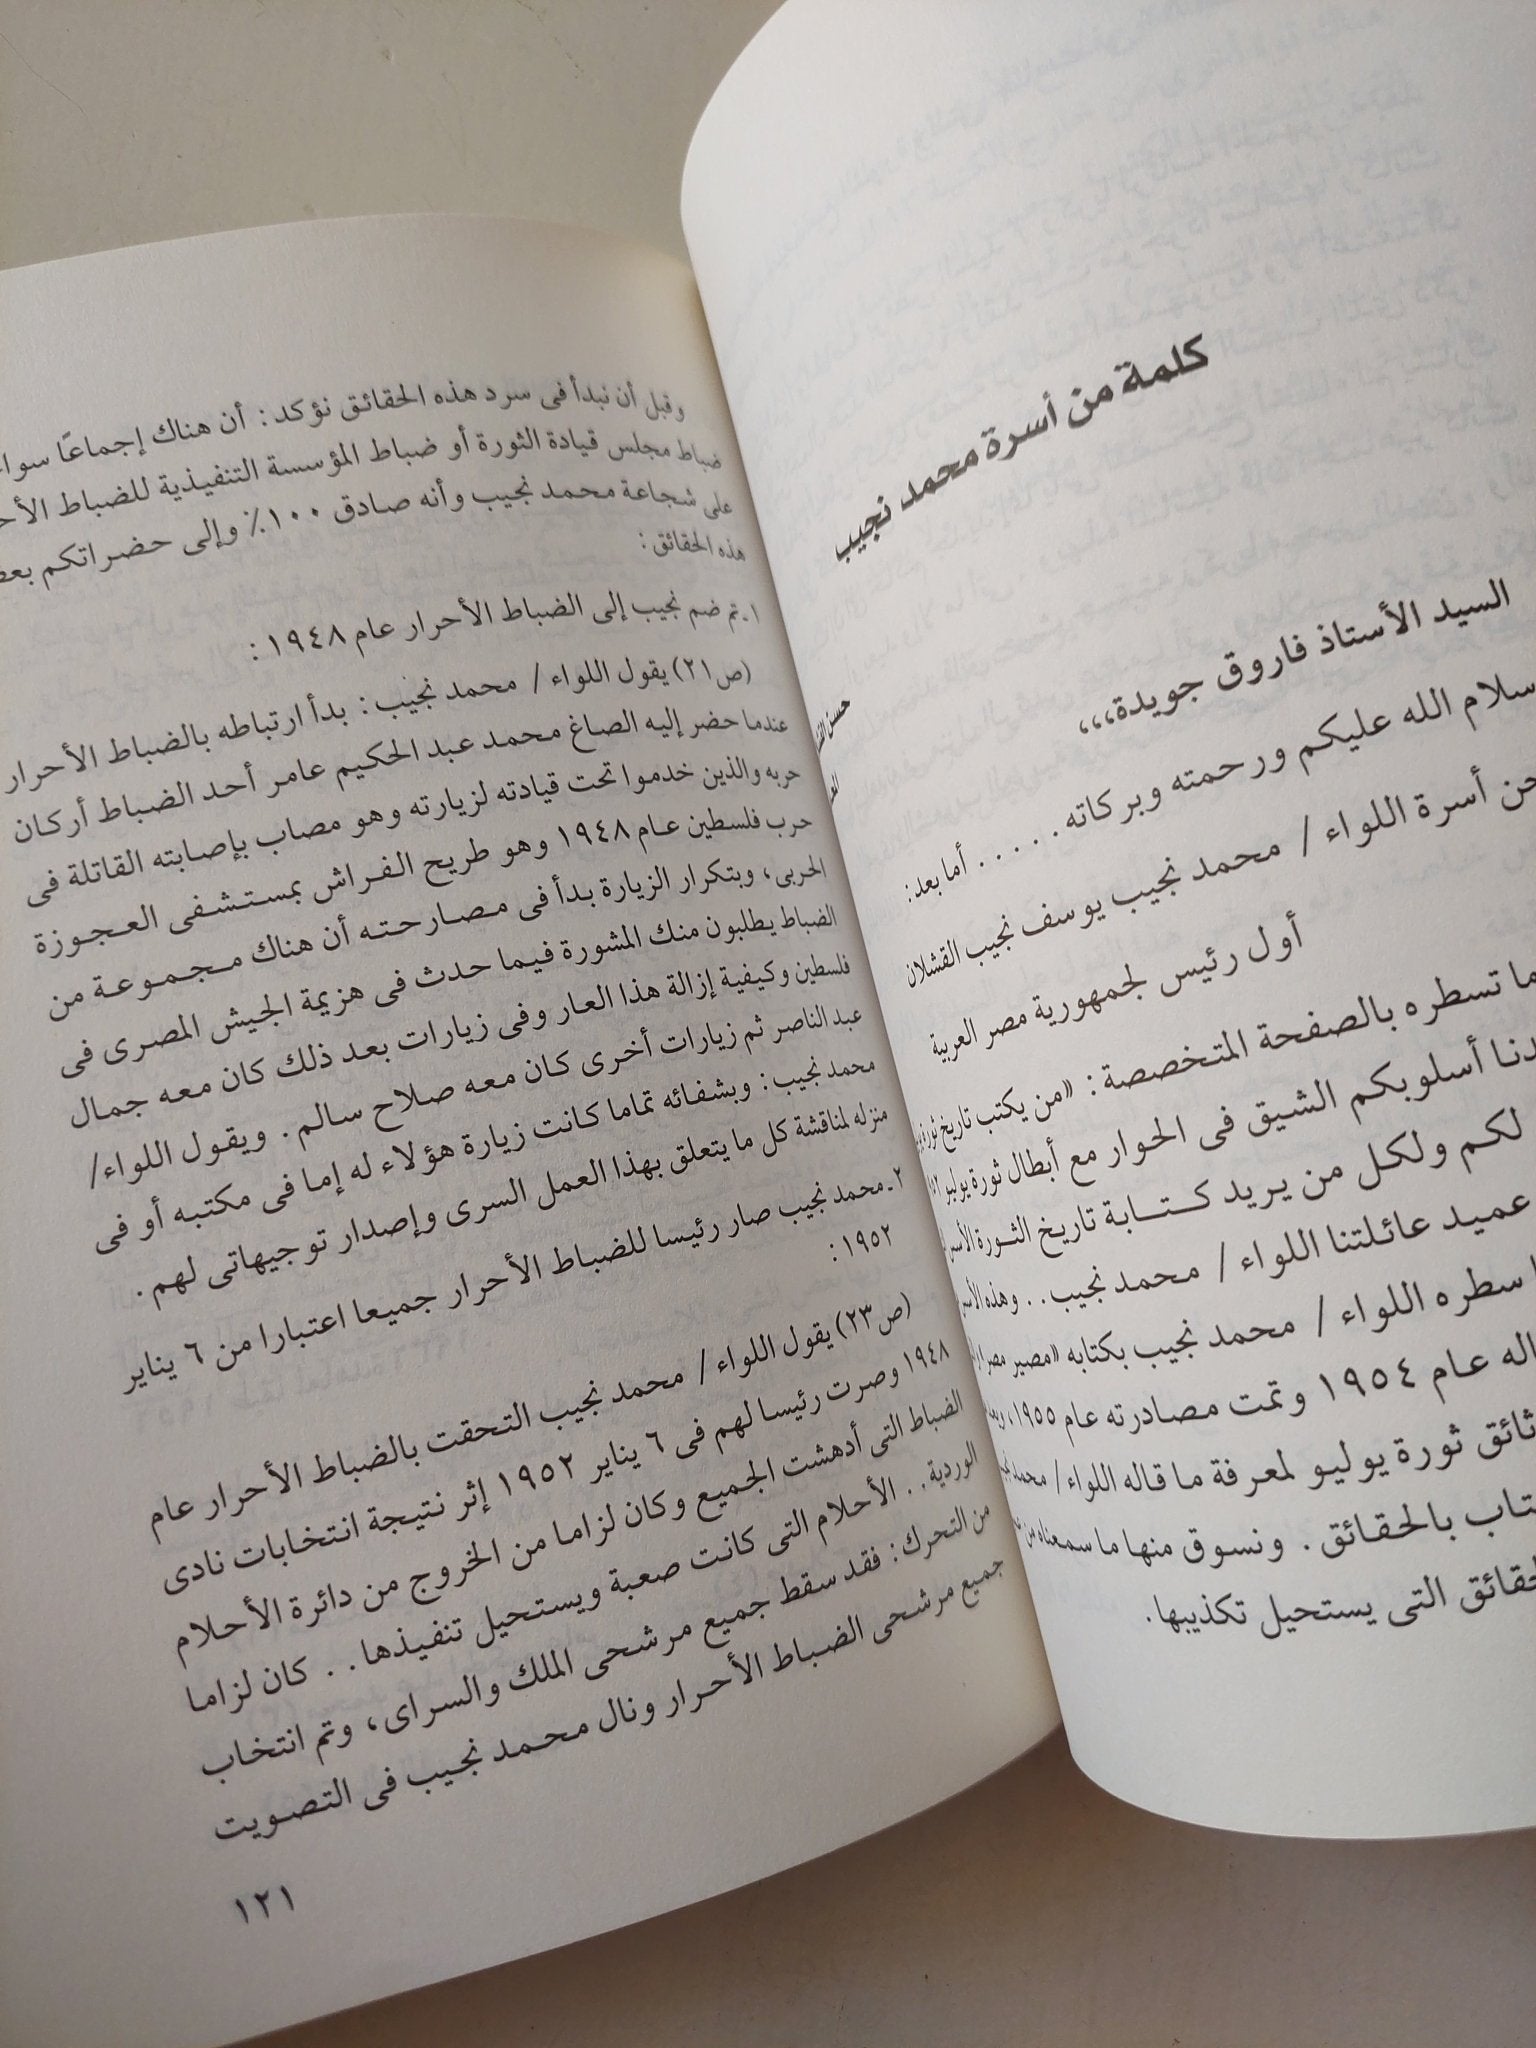 كلمة من أسرة محمد نجيب
السيد الأستاذ فاروق جويدة،،،
سلام الله عليكم ورحمته وبركاته ..... أما بعد:
حن أسرة اللواء / محمد نجيب يوسف نجيب القشلان
أول رئيس لجمهورية مصر العربية
ما تسطره بالصفحة المتخصصة: «من يكتب تاريخ ثورة
دنا أسلوبكم الشيق فى الحوار مع أبطال ثورة يوليو
لكم ولكل من يريد كتابة تاريخ الثورة
عميد عائلتنا اللواء / محمد نجيب.. وهذه
سطره اللواء / محمد نجيب بكتابه «مصير مصر
اله عام ١٩٥٤ وتمت مصادرته عام ١٩٥٥،
ثائق ثورة يوليو لمعرفة ما قاله اللواء / محمد
تاب بالحقائق. ونسوق منها ما سمعناه من
حقائق التى يستحيل تكذيبها.
حسن
وقبل أن نبدأ فى سرد هذه الحقائق نؤكد: أن هناك إجماعًا سوا
ضباط مجلس قيادة الثورة أو ضباط المؤسسة التنفيذية للضباط الأح
على شجاعة محمد نجيب وأنه صادق ١٠٠٪ وإلى حضراتكم بعض
هذه الحقائق:
١ـ تم ضم نجيب إلى الضباط الأحرار عام ١٩٤٨:
(ص٢١) يقول اللواء / محمد نجيب: بدأ ارتباطه بالضباط الأحرار
عندما حضر إليه الصاغ محمد عبد الحكيم عامر أحد الضباط أركان
حربه والذين خدموا تحت قيادته لزيارته وهو مصاب بإصابته القاتلة فى
حرب فلسطين عام ١٩٤٨ وهو طريح الفراش بمستشفى العجوزة
الحربى، وبتكرار الزيارة بدأ فى مصارحته أن هناك مجموعة من
الضباط يطلبون منك المشورة فيما حدث فى هزيمة الجيش المصرى فى
فلسطين وكيفية إزالة هذا العار وفى زيارات بعد ذلك كان معه جمال
عبد الناصر ثم زيارات أخرى كان معه صلاح سالم. ويقول اللواء/
محمد نجيب: وبشفائه تماما كانت زيارة هؤلاء له إما فى مكتبه أو فى
منزله لمناقشة كل ما يتعلق بهذا العمل السرى وإصدار توجيهاتى لهم.
٢ـ محمد نجيب صار رئيسا للضباط الأحرار جميعا اعتبارا من ٦ يناير
١٩٥٢:
(ص٢٣) يقول اللواء / محمد نجيب التحقت بالضباط الأحرار عام
١٩٤٨ وصرت رئيسا لهم فى ٦ يناير ١٩٥٢ إثر نتيجة انتخابات نادى
الضباط التى أدهشت الجميع وكان لزاما من الخروج من دائرة الأحلام
الوردية.. الأحلام التى كانت صعبة ويستحيل تنفيذها.. كان لزاما
من التحرك: فقد سقط جميع مرشحى الملك والسراى، وتم انتخاب
جميع مرشحى الضباط الأحرار ونال محمد نجيب فى التصويت
١٢١